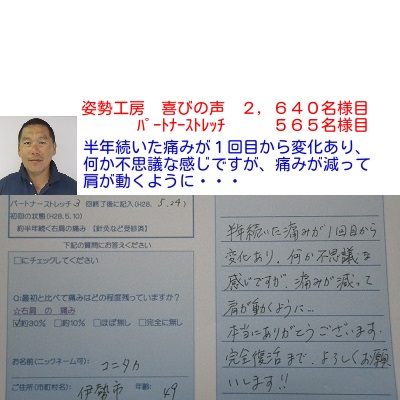 姿勢工房　喜びの声　２，６４０名様目
パートナーストレッチ　５６５名様目
半年続いた痛みが１回目から変化あり、
何か不思議な感じですが、痛みが減って
肩が動くように・・・
パートナーストレッチ 3 回終了後に記入(H28. 5.24)
初回の状態(H28.5.10)
約半年続く右肩の痛み 【針灸など受診済】
下記の質問にお答えください
□にチェックしてください
Q:最初と比べて痛みはどの程度残っていますか?
☆右肩 の 痛み
☑約30% □約10% □ほぼ無し □完全に無し
お名前(ニックネーム可): コニタカ
ご住所(市町村名): 伊勢市 年齢: 49
半年続いた痛みが1回目から
変化あり、何か不思議な
感じですが、痛みが減って
肩が動くように…
本当にありがとうございます。
完全復活まで、よろしくお願
いします!!